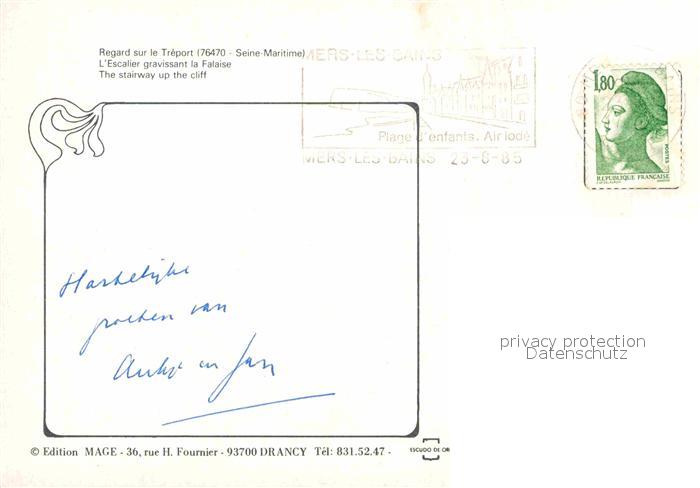 Regard sur le Tréport (76470 - Seine-Maritime)
L'Escalier gravissant la Falaise
The stairway up the cliff
MERS-LES-BAINS
Plage d'enfants. Air iodé
MERS-LES-BAINS 23-8-85
1,80
POSTES
REPUBLIQUE FRANÇAISE
Hartelijke
groeten van
en Jan
privacy protection
Datenschutz
© Edition MAGE - 36, rue H. Fournier - 93700 DRANCY Tél: 831.52.47 -
ESCUDO DE OR